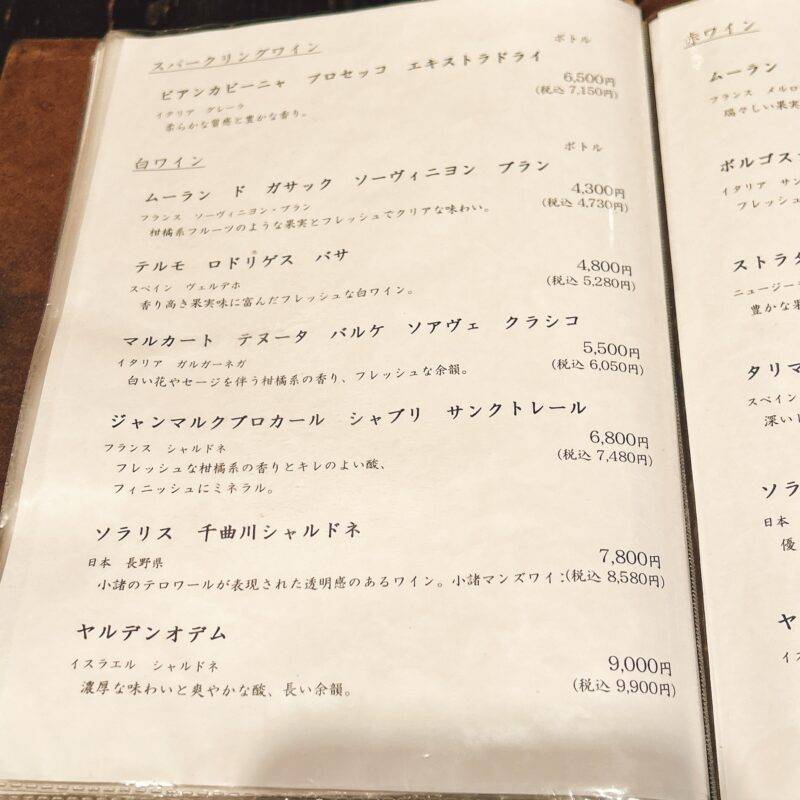 スパークリングワイン
ボトル
ビアンカビーニャ プロセッコ エキストラドライ
6,500円
(税込 7,150円)
イタリア グレーラ
柔らかな質感と豊かな香り。
白ワイン
ボトル
ムーラン ド ガサック ソーヴィニヨン ブラン
4,300円
(税込 4,730円)
フランス ソーヴィニヨン・ブラン
柑橘系フルーツのような果実とフレッシュでクリアな味わい。
テルモ ロドリゲス バサ
4,800円
(税込 5,280円)
スペイン ヴェルデホ
香り高き果実味に富んだフレッシュな白ワイン。
マルカート テヌータ バルケ ソアヴェ クラシコ
5,500円
(税込 6,050円)
イタリア ガルガーネガ
白い花やセージを伴う柑橘系の香り、フレッシュな余韻。
ジャンマルクブロカール シャブリ サンクトレール
6,800円
(税込 7,480円)
フランス シャルドネ
フレッシュな柑橘系の香りとキレのよい酸、
フィニッシュにミネラル。
ソラリス 千曲川シャルドネ
7,800円
日本 長野県
小諸のテロワールが表現された透明感のあるワイン。小諸マンズワイン(税込 8,580円)
ヤルデンオデム
9,000円
(税込 9,900円)
イスラエル シャルドネ
濃厚な味わいと爽やかな酸、長い余韻。
赤ワイン
ムーラン
フランス メルロ
瑞々しい果実
ボルゴス
イタリア サン
フレッシュ
ストラタ
ニュージー
豊かな果
タリマ
スペイン
深い
ソラ
日本
優
ヤ
イス